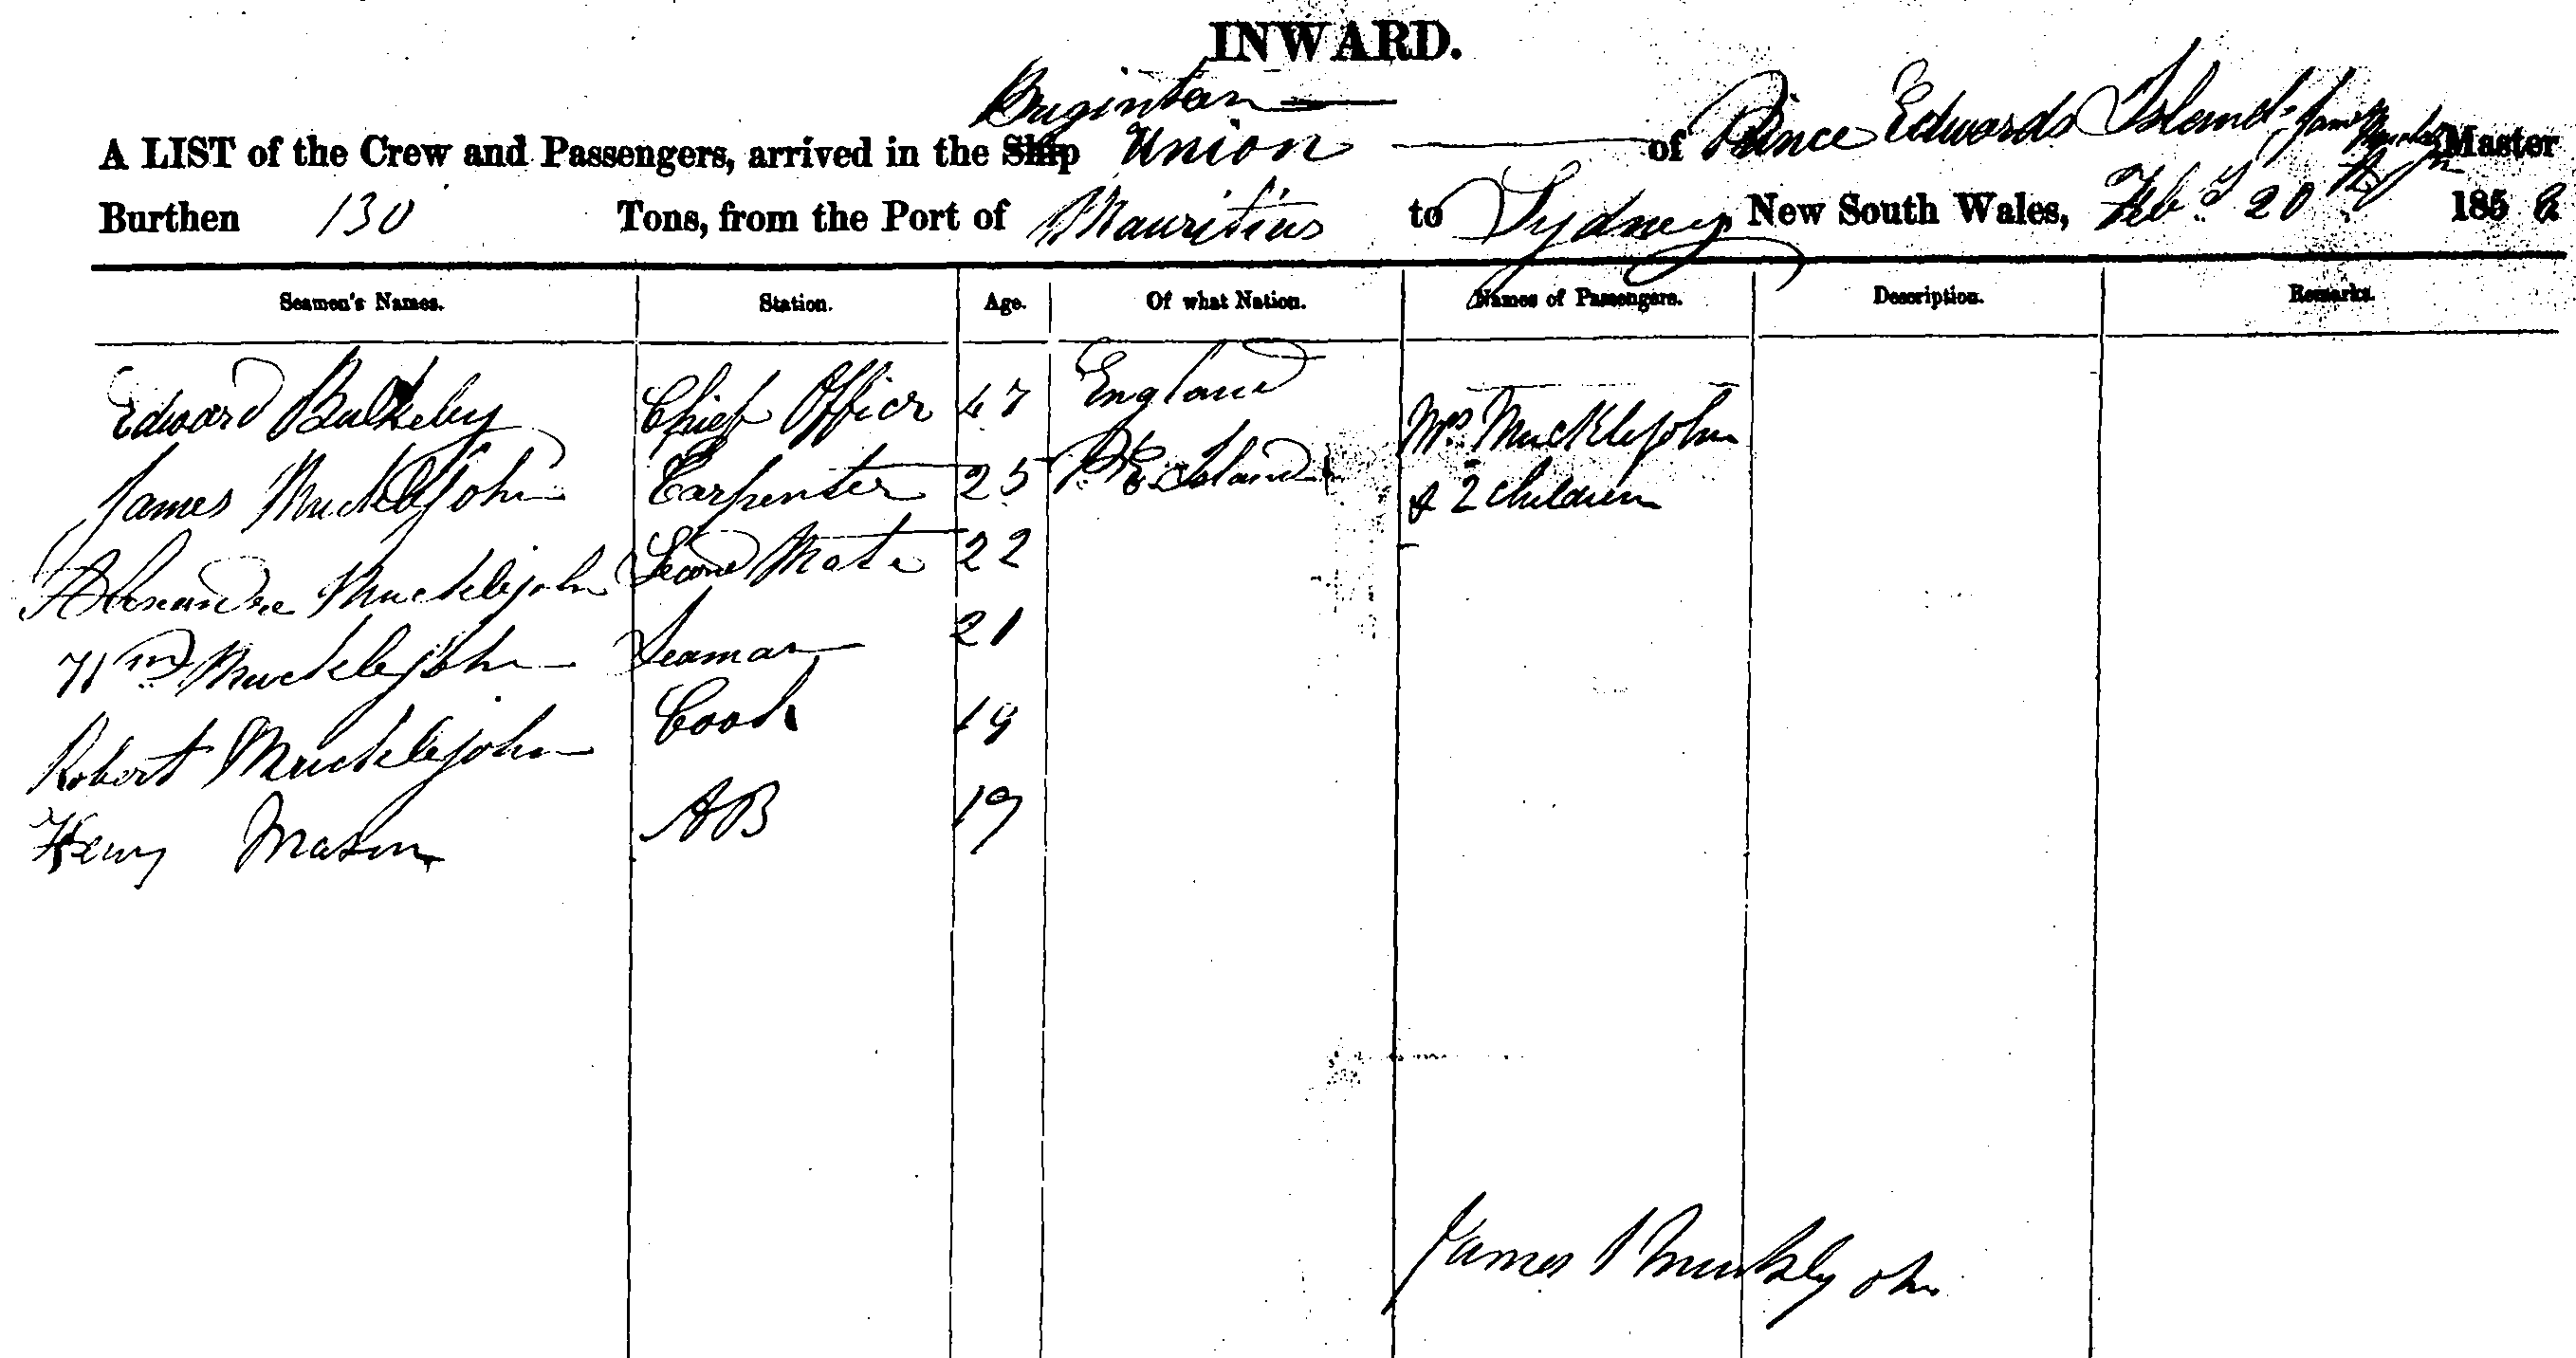 INWARD.
Brigintan
A LIST of the Crew and Passengers, arrived in the Ship Union of Prince Edwards Island James Master
Burthen 130 Tons, from the Port of Mauritius to Sydney New South Wales, Feby 20th 185
Seamen's Names. Station. Age. Of what Nation. Names of Passengers. Description. Remarks.
Edward Bulkeley Chief Officer 47 England Mrs Mucklejohn
James Mucklejohn Carpenter 25 P. E. Island & 2 children
Alexandre Mucklejohn Second Mate 22
Wm Mucklejohn Seaman 21
Robert Mucklejohn Cook 19
Henry Mason AB 19
James Mucklyjohn